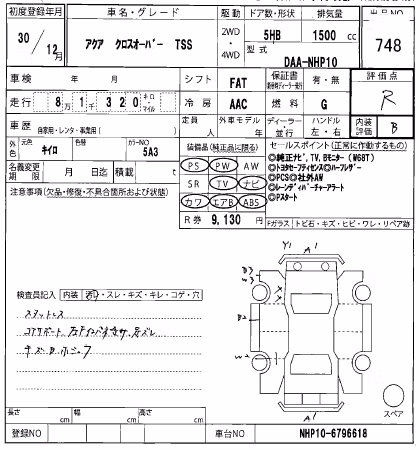 初度登録年月 車名・グレード 駆動 ドア数・形状 排気量 出品NO
30/12月 アクア クロスオーバー TSS 2WD・4WD 5HB 1500 cc 748
型式 DAA-NHP10
車検 年 月 シフト FAT 保証書 有・無 評価点 R
走行 8万1千320 キロ・マイル 冷房 AAC 燃料 G
車歴 自家用・レンタ・事業用( ) 定員 人 外車モデル 年 ディーラー・並行 ハンドル 左・右 内装評価 B
外色 元色 キイロ 色替 カラーNO 5A3
装備品(純正品に限る) セールスポイント(正常に作動するもの)
名義変更期限 月 日迄 積載 t
PS PW AW
SR TV ナビ
カワ エアB ABS
◎純正ナビ、TV、Bモニター(W68T)
◎トヨタセーフティセンス◎ハーフレザー
◎PCS◎社外AW
◎レーンディパーチャーアラート
◎Pスタート
注意事項(欠品・修復・不具合箇所および状態)
R券 9,130 円
Fガラス トビ石・キズ・ヒビ・ワレ・リペア跡
Y1 A1
B2
W2
A1
検査員記入 内装 汚・スレ・キズ・キレ・コゲ・穴
スペア
長さ cm 幅 cm 高さ cm
登録NO 車台NO NHP10-6796618